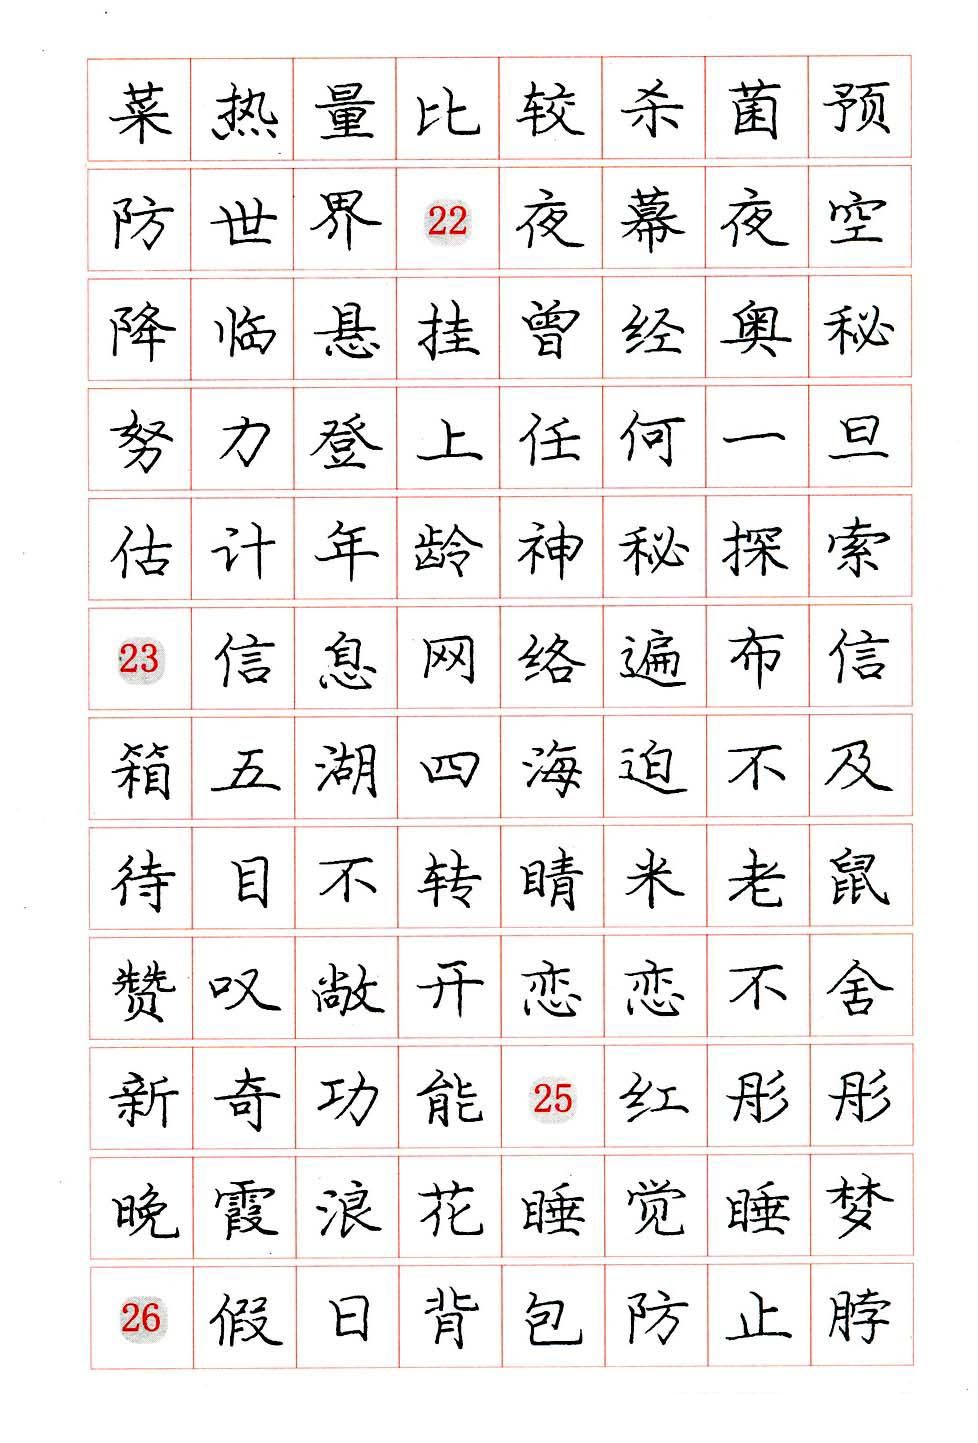 菜热量比较杀菌预
防世界22夜幕夜空
降临悬挂曾经奥秘
努力登上任何一旦
估计年龄神秘探索
23信息网络遍布信
箱五湖四海迫不及
待目不转睛米老鼠
赞叹敞开恋恋不舍
新奇功能25红彤彤
晚霞浪花睡觉睡梦
26假日背包防止脖